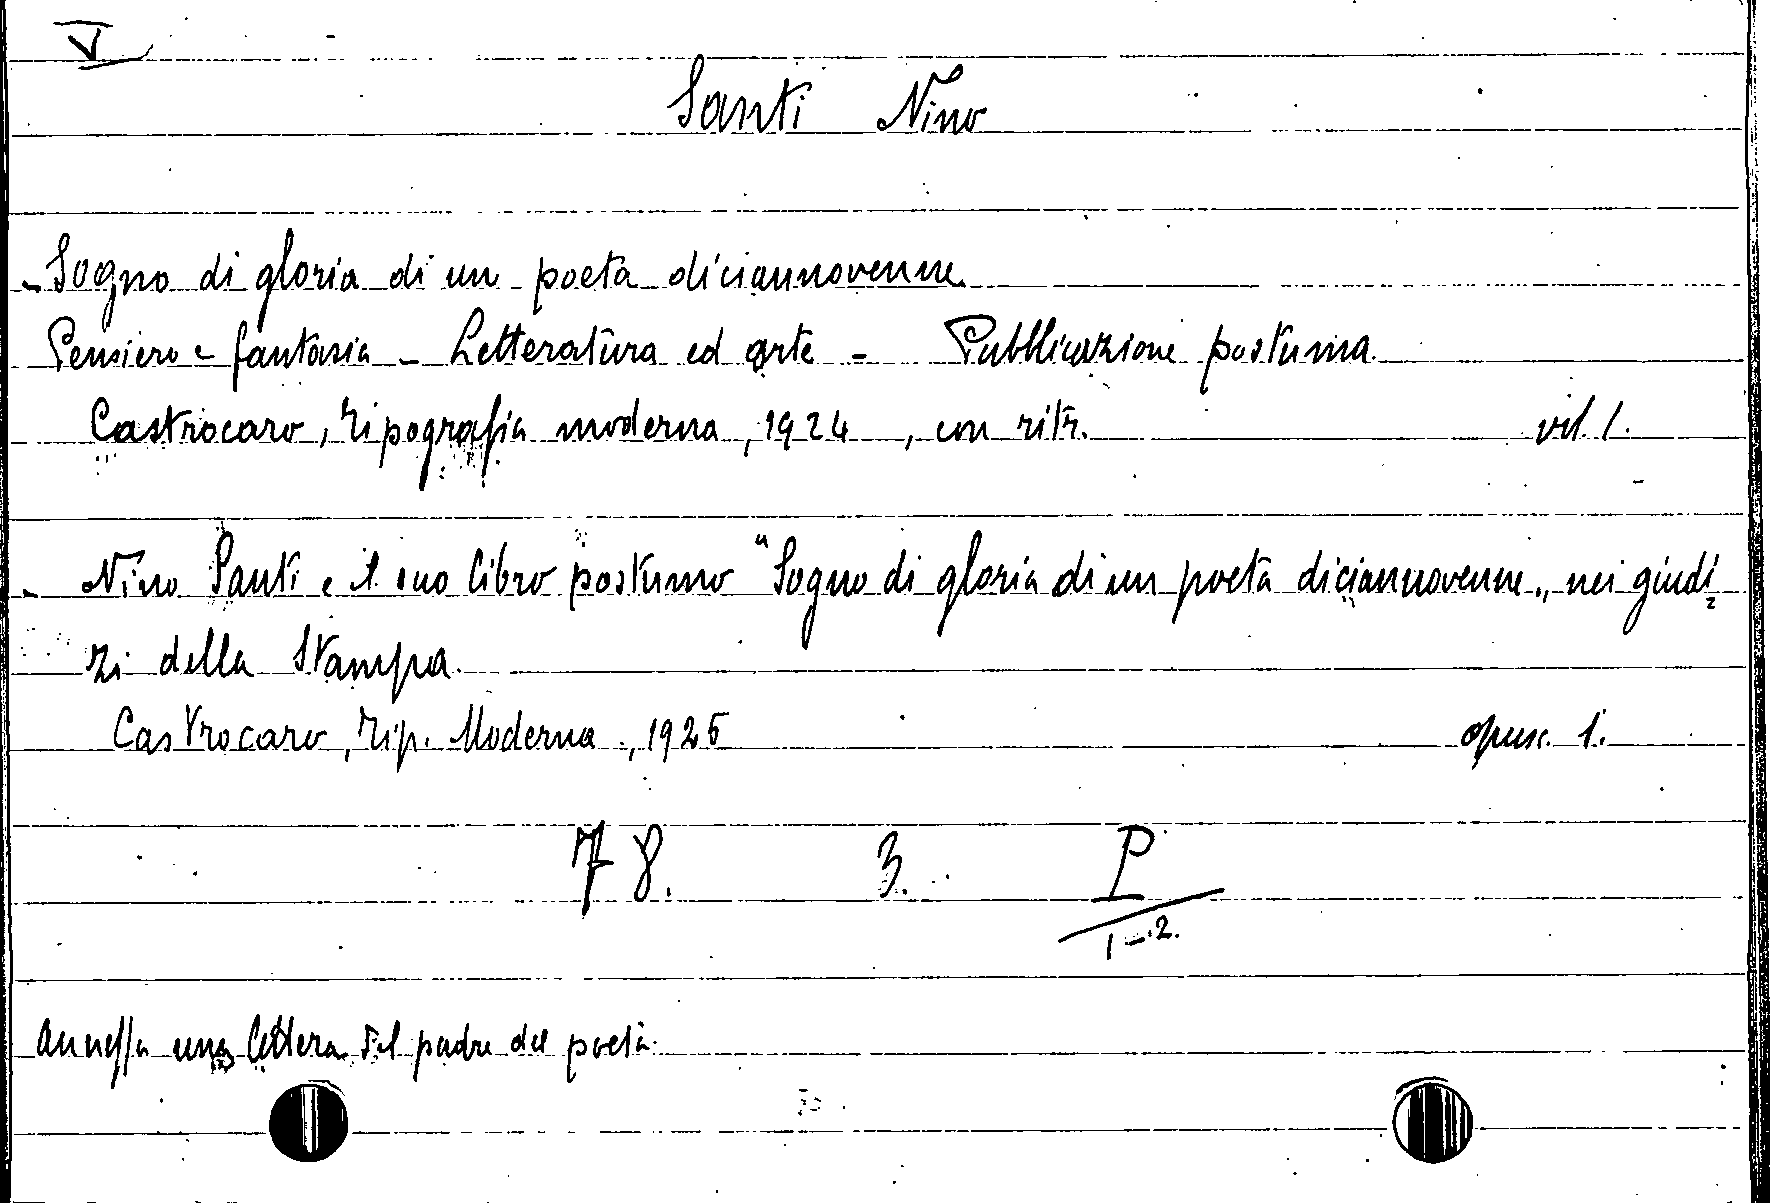 V
Santi Nino
- Sogno di gloria di un poeta diciannovenne
Pensiero e fantasia - Letteratura ed arte - Pubblicazione postuma
Castrocaro, tipografia moderna, 1924, con ritr. vol. 1.
- Nino Santi e il suo libro postumo "Sogno di gloria di un poeta diciannovenne„ nei giudi=
zi della Stampa.
Castrocaro, Tip. Moderna, 1925 opusc. 1.
78. 3. P
1-2.
Annessa una lettera del padre del poeta